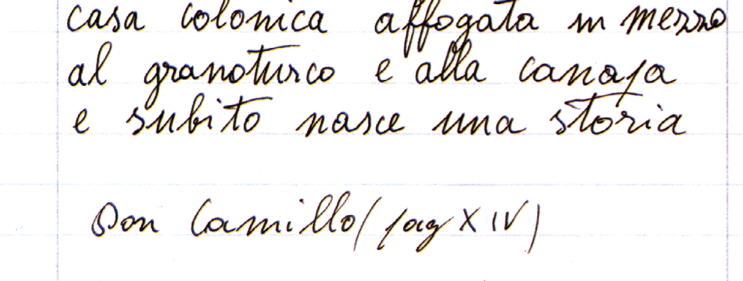 casa colonica affogata in mezzo
al granoturco e alla canapa
e subito nasce una storia
Don Camillo (pag XIV)